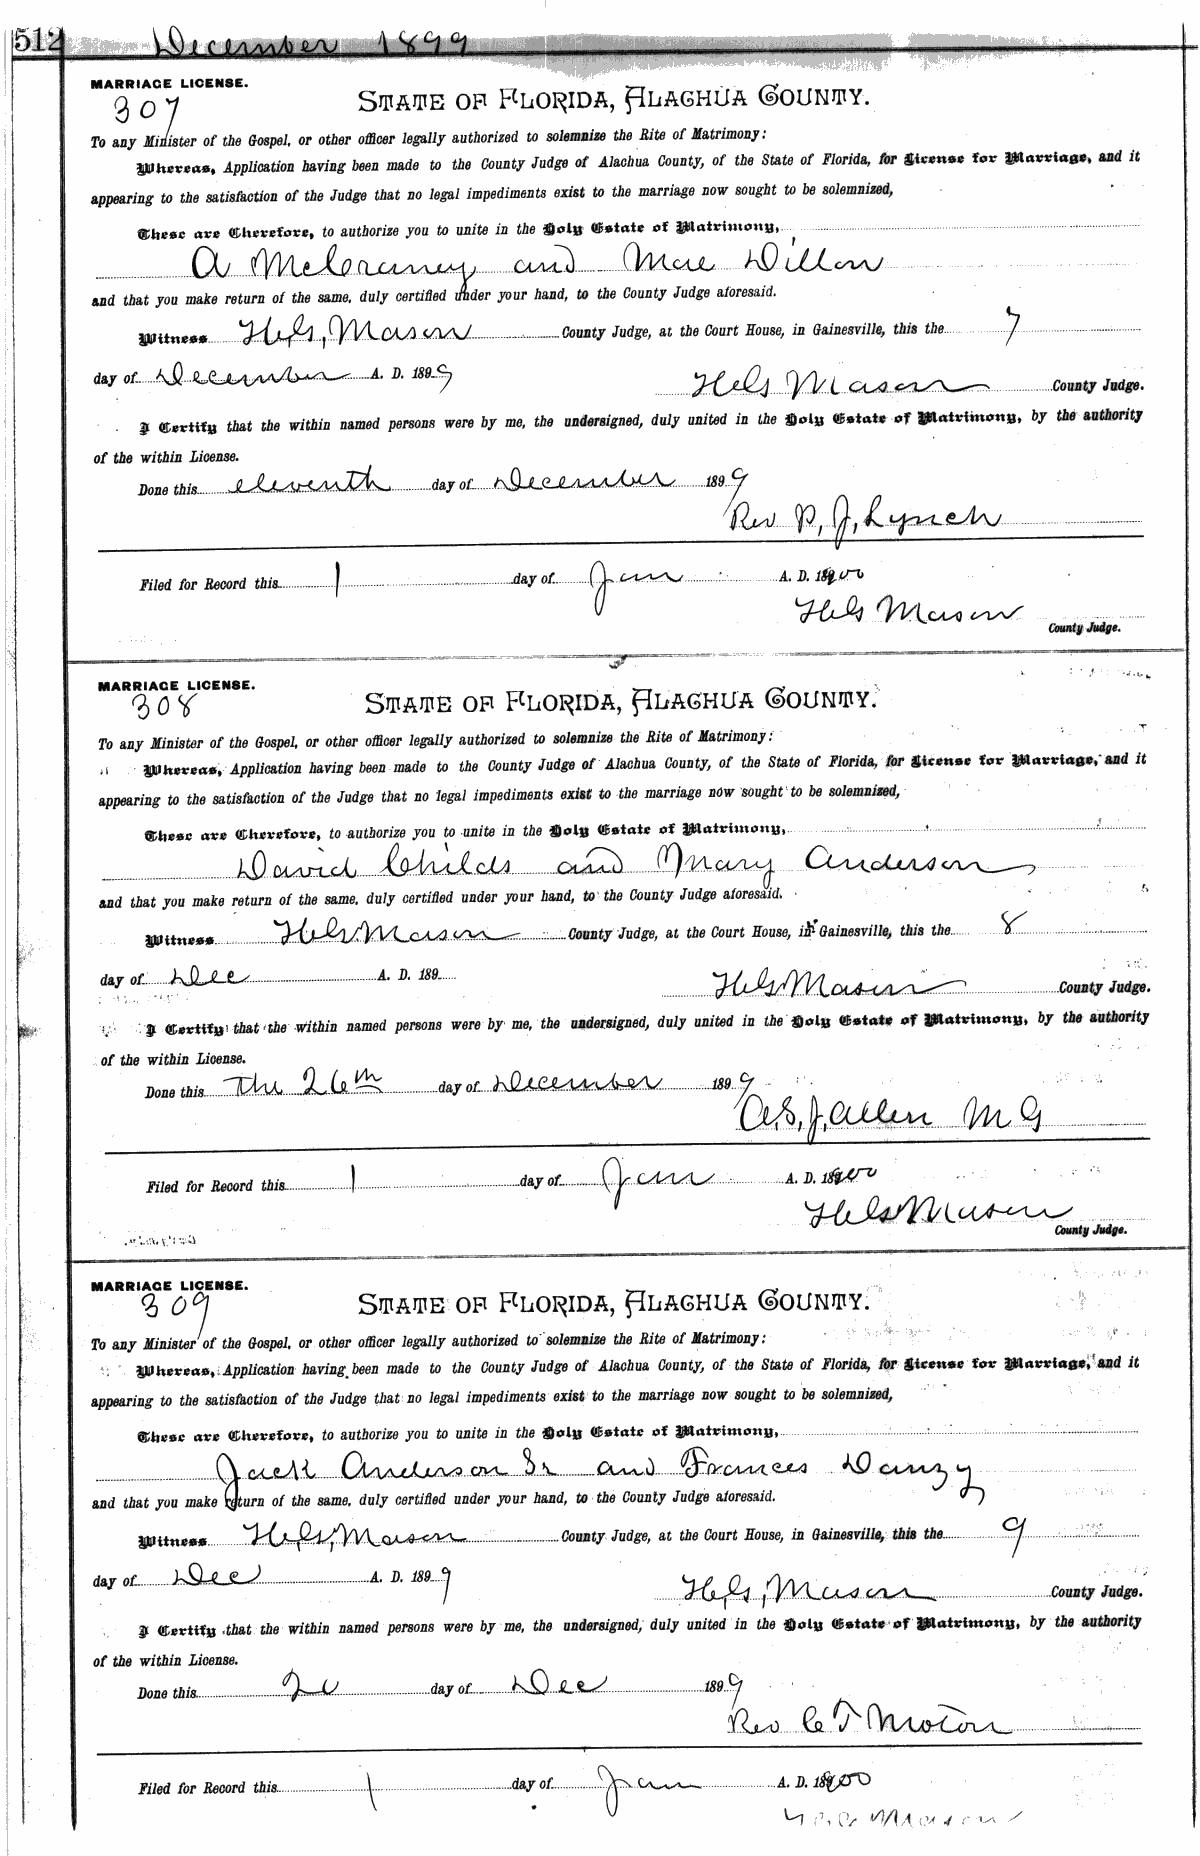 512 December 1899
MARRIAGE LICENSE.
307
STATE OF FLORIDA, ALACHUA COUNTY.
To any Minister of the Gospel, or other officer legally authorized to solemnize the Rite of Matrimony:
Whereas, Application having been made to the County Judge of Alachua County, of the State of Florida, for License for Marriage, and it
appearing to the satisfaction of the Judge that no legal impediments exist to the marriage now sought to be solemnized,
These are Therefore, to authorize you to unite in the Holy Estate of Matrimony,
A McCraney and Mae Dillon
and that you make return of the same, duly certified under your hand, to the County Judge aforesaid.
Witness H.G. Mason County Judge, at the Court House, in Gainesville, this the 7
day of December A. D. 1899
H G Mason County Judge.
I Certify that the within named persons were by me, the undersigned, duly united in the Holy Estate of Matrimony, by the authority
of the within License.
Done this eleventh day of December 1899
Rev P, J, Lynch
Filed for Record this 1 day of Jan A. D. 1900
H G Mason
County Judge.
MARRIAGE LICENSE.
308
STATE OF FLORIDA, ALACHUA COUNTY.
To any Minister of the Gospel, or other officer legally authorized to solemnize the Rite of Matrimony:
Whereas, Application having been made to the County Judge of Alachua County, of the State of Florida, for License for Marriage, and it
appearing to the satisfaction of the Judge that no legal impediments exist to the marriage now sought to be solemnized,
These are Therefore, to authorize you to unite in the Holy Estate of Matrimony,
David Childs and Mary Anderson
and that you make return of the same, duly certified under your hand, to the County Judge aforesaid.
Witness H.G. Mason County Judge, at the Court House, in Gainesville, this the 8
day of Dec A. D. 189
H G Mason County Judge.
I Certify that the within named persons were by me, the undersigned, duly united in the Holy Estate of Matrimony, by the authority
of the within License.
Done this The 26th day of December 1899
A, S, J, Allen M G
Filed for Record this 1 day of Jan A. D. 1900
H G Mason
County Judge.
MARRIAGE LICENSE.
309
STATE OF FLORIDA, ALACHUA COUNTY.
To any Minister of the Gospel, or other officer legally authorized to solemnize the Rite of Matrimony:
Whereas, Application having been made to the County Judge of Alachua County, of the State of Florida, for License for Marriage, and it
appearing to the satisfaction of the Judge that no legal impediments exist to the marriage now sought to be solemnized,
These are Therefore, to authorize you to unite in the Holy Estate of Matrimony,
Jack Anderson Sr and Frances Danzy
and that you make return of the same, duly certified under your hand, to the County Judge aforesaid.
Witness H, G, Mason County Judge, at the Court House, in Gainesville, this the 9
day of Dec A. D. 1899
H, G, Mason County Judge.
I Certify that the within named persons were by me, the undersigned, duly united in the Holy Estate of Matrimony, by the authority
of the within License.
Done this 20 day of Dec 1899
Rev C T Moton
Filed for Record this 1 day of Jan A. D. 1900
Mason